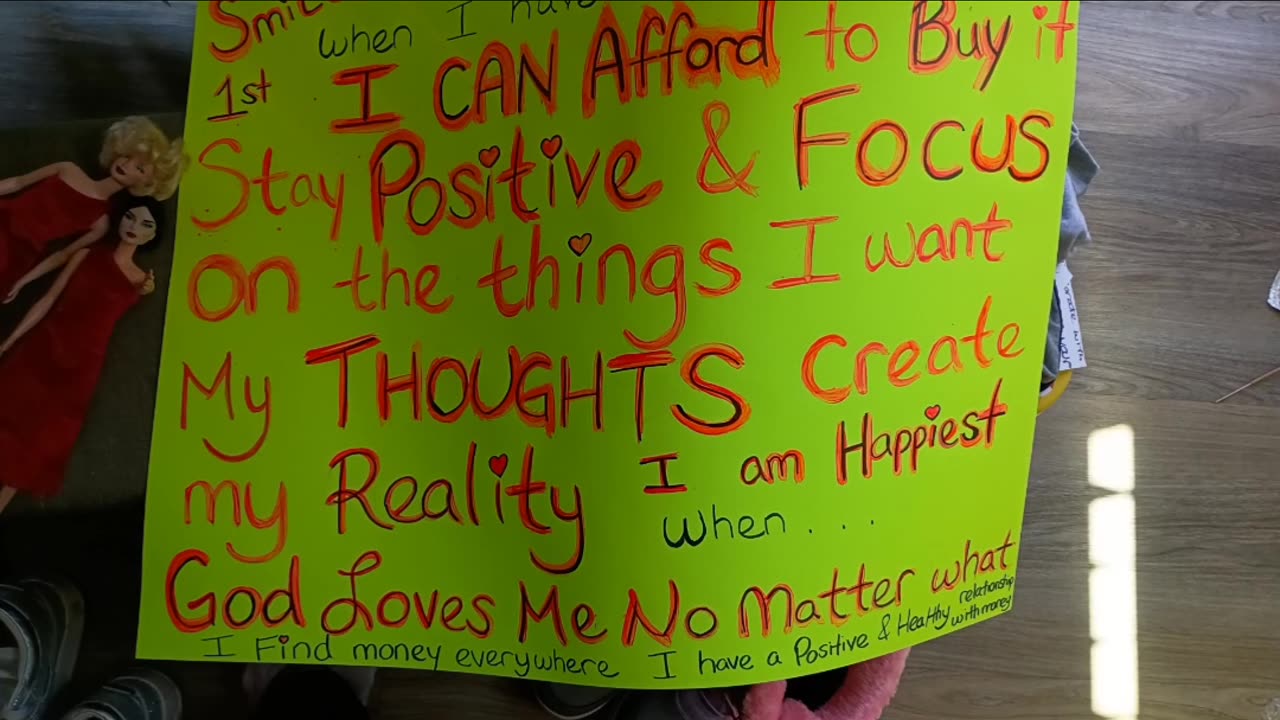 Smile
when I have
1st I CAN Afford to Buy it
Stay Positive & Focus
on the things I want
My THOUGHTS Create
my Reality I am Happiest
when...
God Loves Me No Matter what
I Find money everywhere I have a Positive & Healthy relationship with money